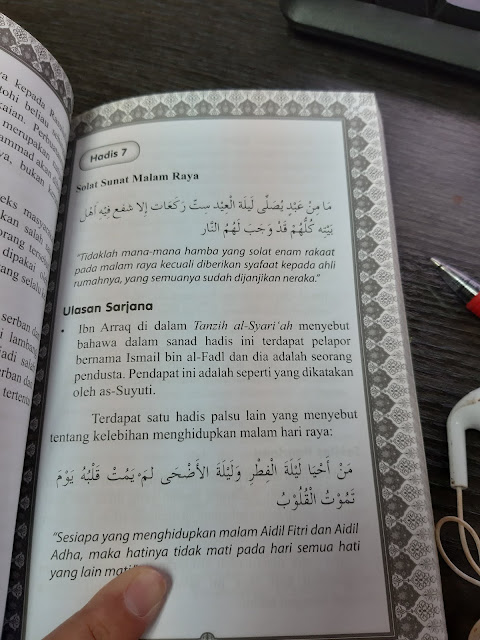 ya kepada
beliau
kaian. Perbua
merupakan
ammad akan di
ya, bukan
teks masya
kan salah
orang terse
dipakai
ang selalu
serban da
lamban
jadi sala
tertent
Hadis 7
Solat Sunat Malam Raya
مَا مِنْ عَبْدٍ يُصَلَّى لَيْلَةَ الْعِيْدِ سِتَّ رَكَعَات إِلا شفع فِيْهِ أَهْل
بَيْتِه كُلُّهُمْ قَدْ وَجَبَ لَهُمُ النَّار
"Tidaklah mana-mana hamba yang solat enam rakaat
pada malam raya kecuali diberikan syafaat kepada ahli
rumahnya, yang semuanya sudah dijanjikan neraka."
Ulasan Sarjana
• Ibn Arraq di dalam Tanzih al-Syari'ah menyebut
bahawa dalam sanad hadis ini terdapat pelapor
bernama Ismail bin al-Fadl dan dia adalah seorang
pendusta. Pendapat ini adalah seperti yang dikatakan
oleh as-Suyuti.
Terdapat satu hadis palsu lain yang menyebut
tentang kelebihan menghidupkan malam hari raya:
مَنْ أَحْيَا لَيْلَةَ الْفِطْرِ وَلَيْلَةَ الأَضْحَى لَمْ يَمُتْ قَلْبُهُ يَوْمَ
تَمُوْتُ الْقُلُوْبُ
"Sesiapa yang menghidupkan malam Aidil Fitri dan Aidil
Adha, maka hatinya tidak mati pada hari semua hati
yang lain mati."